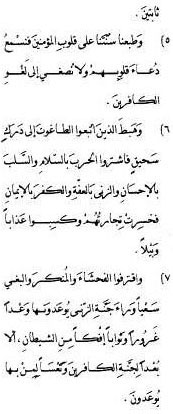 ثابتين .
(٥) وطبعنا سنتنا على قلوب المؤمنين فنسمع
دعاء قلوبهم ولا نصغي إلى لغو
الكافرين .
(٦) وهبط الذين اتبعوا الطاغوت إلى درك
سحيق فاشتروا الحرب بالسلام والسلب
بالإحسان والزنى بالعفة والكفر بالإيمان
فخسرت تجارتهم وكسبوا عذاباً
وبيلاً .
(٧) واقترفوا الفحشاء والمنكر والبغي
سعياً وراء جنة الزنى يوعدونها وعداً
غروراً وثواباً إفكاً من الشيطان ، ألا
بعداً لجنة الكافرين وتعساً لمن بها
يوعدون .